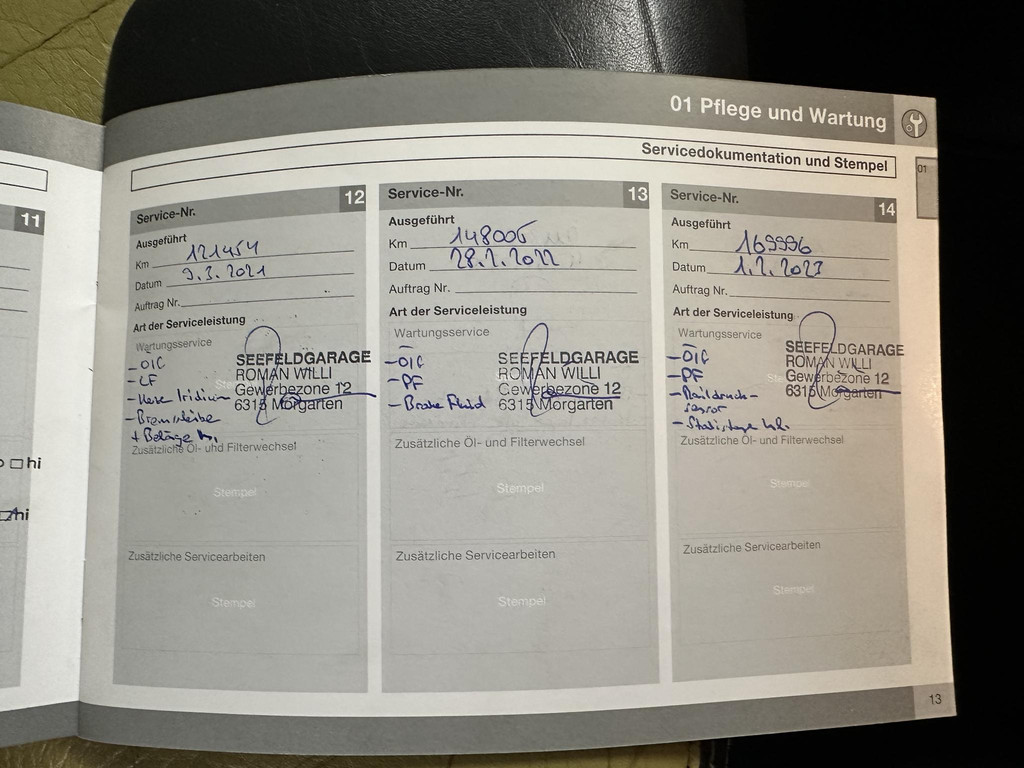 01 Pflege und Wartung
Servicedokumentation und Stempel
01
11
hi
hi
Service-Nr. 12
Ausgeführt
Km 121454
Datum 9.3.2021
Auftrag Nr.
Art der Serviceleistung
Wartungsservice
- OIC
- LF
Iridium
SEEFELDGARAGE
ROMAN WILLI
Gewerbezone 12
6315 Morgarten
+ Beläge
Zusätzliche Öl- und Filterwechsel
Stempel
Zusätzliche Servicearbeiten
Stempel
Service-Nr. 13
Ausgeführt
Km 148005
Datum 28.2.2022
Auftrag Nr.
Art der Serviceleistung
Wartungsservice
- OIC
- PF
- Brake Fluid
SEEFELDGARAGE
ROMAN WILLI
Gewerbezone 12
6315 Morgarten
Zusätzliche Öl- und Filterwechsel
Stempel
Zusätzliche Servicearbeiten
Stempel
Service-Nr. 14
Ausgeführt
Km 169996
Datum 1.2.2023
Auftrag Nr.
Art der Serviceleistung
Wartungsservice
- OIC
- PF
- Raildruck-
sensor
SEEFELDGARAGE
ROMAN WILLI
Gewerbezone 12
6315 Morgarten
Zusätzliche Öl- und Filterwechsel
Stempel
Zusätzliche Servicearbeiten
Stempel
13